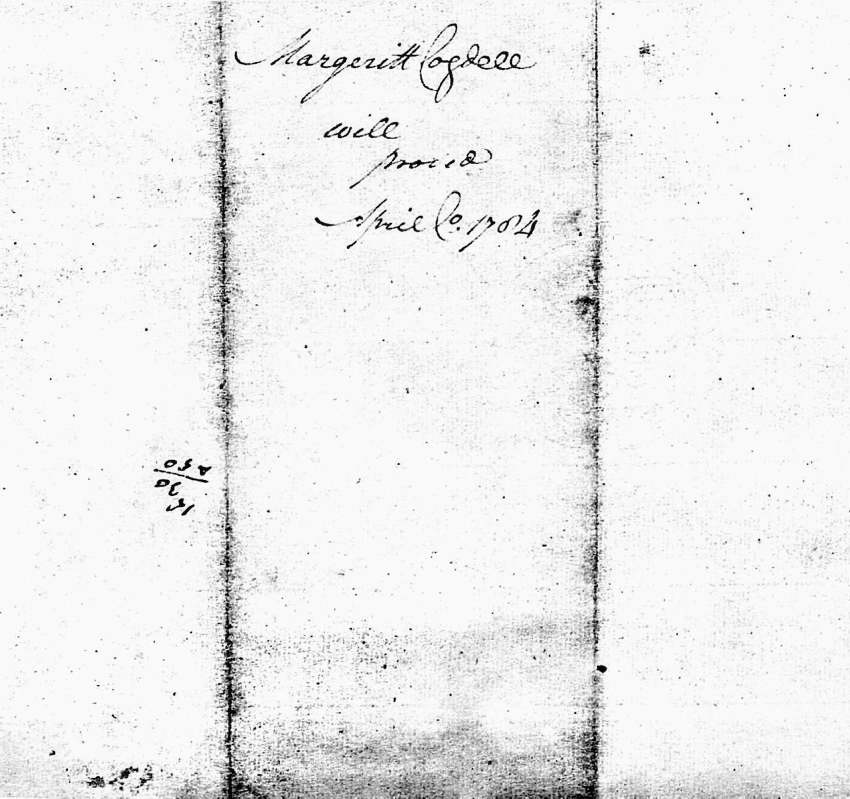 Margeritt Cogdell
will
proved
April Co. 1784
15
30
450